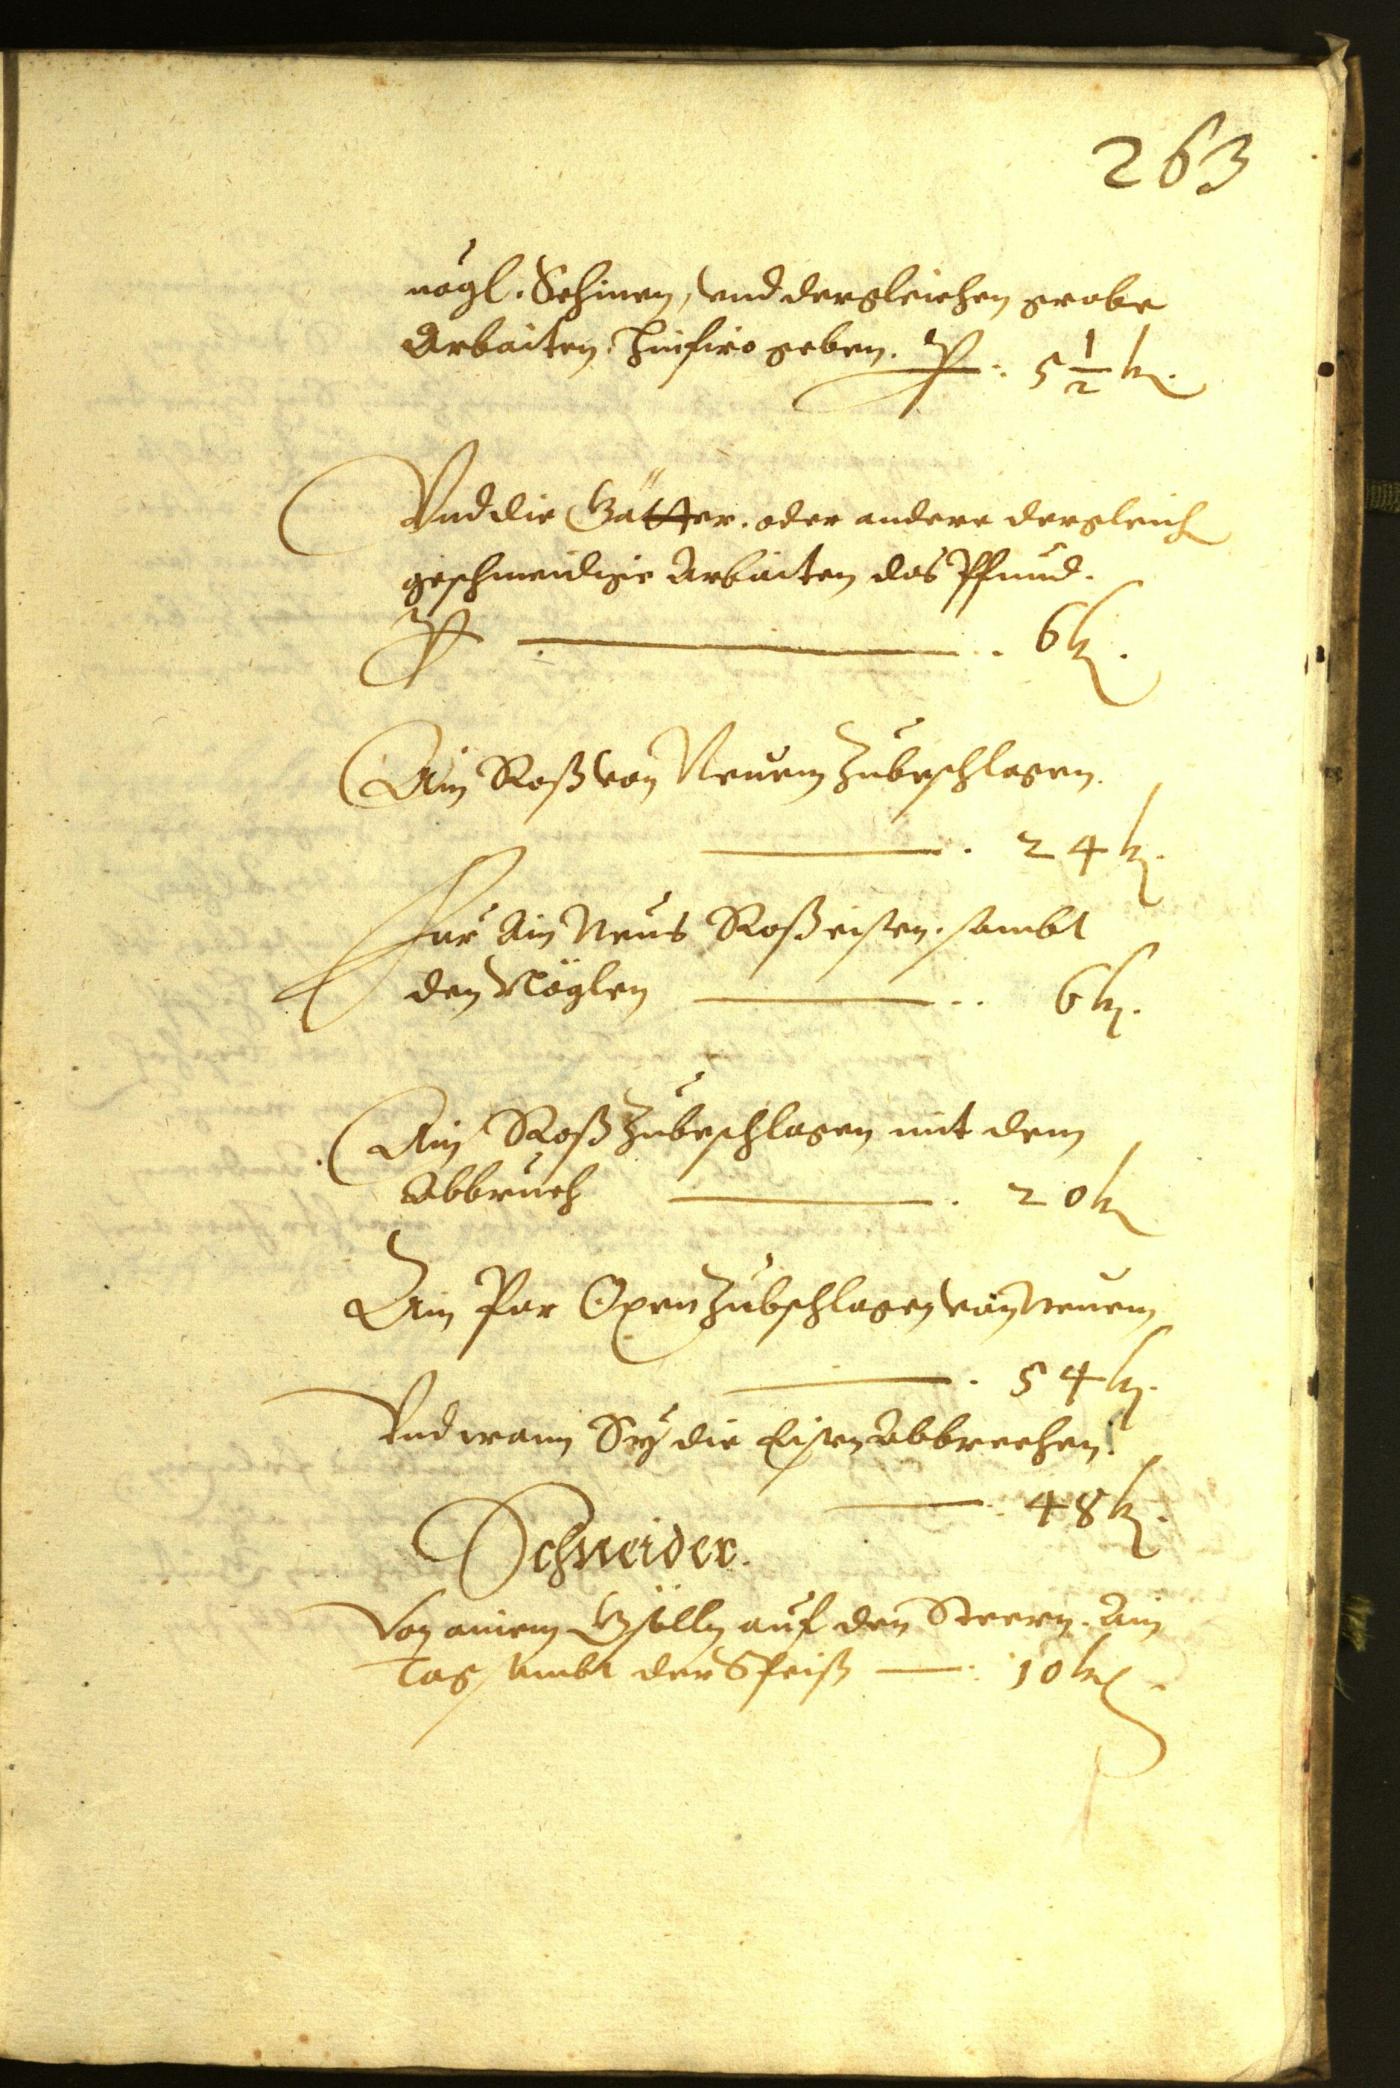 263
nögl. Schinen, vnd dergleichen grobe
Arbaiten. hinfiro geben. Pr. 5½ kr.
Vnd die Gätter. oder andere dergleich
geschmeidige Arbaiten das Pfund.
Pr 6 kr.
Ain Roß von Neuem Zubeschlagen.
24 kr.
Für Ain Neus Roßeisen. sambt
den Nöglen 6 kr.
Ain Roß Zubeschlagen mit dem
Abbruch 20 kr
Ain Par Oxen Zubschlagen von neuem
54 kr.
Vnd wann Sy die Eisen Abbrechen.
48 kr.
Schneider.
Von ainem Gsölln auf den Steern. Ain
Tag sambt der Speiß 10 kr.